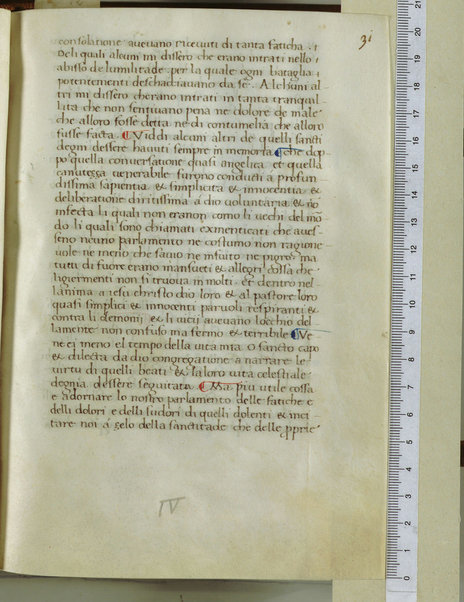 31
consolatione aueuano riceuuti di tanta faticha. ;
Deli quali alcuni mi dissero che erano intrati nello
abisso de lumilitade. per la quale ogni bataglia
potentementi deschaciauano da se. Alchuni al
tri mi dissero cherano intrati in tanta tranquil
lita che non sentiuano pena ne dolore de male
che alloro fosse detta ne di contumelia che alloro
fusse facta. ¶ Viddi alcuni altri de quelli sancti
degni dessere hauuti sempre in memoria ¶ che do
po quella conuersatione quasi angelica et quella
canutezza uenerabile furono conducti a profun
dissima sapientia & simplicita & innocentia &
deliberatione dirittissima a dio uoluntaria & nō
infecta li quali non eranon como li uechi del mō
do li quali sono chiamati exinenticati che aues
seno neuno parlamento ne costumo non ragione
uole ne meno che sauio ne insuito ne pigro. ma
tutti di fuore erano mansueti & allegri cossa che
ligierment non si truoua in molti. et dentro nel
lanima a iesu christo dio loro & al pastore loro
quasi simplici & innocenti paruoli respiranti &
contra li demonij & li uicij aueuano locchio del
lamente non confuso ma fermo & terribile ¶ Ve
ne ei meno el tempo della uita mia. O sancto capo
& dilecta da dio congregatione a narrare le
uirtu di quelli beati & la loro uita celestiale
degnia dessere seguitata. ¶ Ma piu utile cossa
e adornare lo nostro parlamento delle fatiche e
delli dolori e delli sudori di quelli dolenti & inci
tare noi a gelo della sanctitade che delle pprie
IV